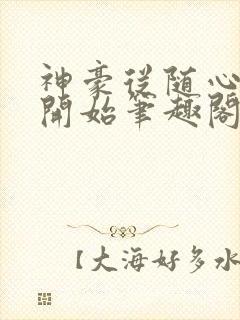 神豪從随心
開始筆趣閣
【大海好多水